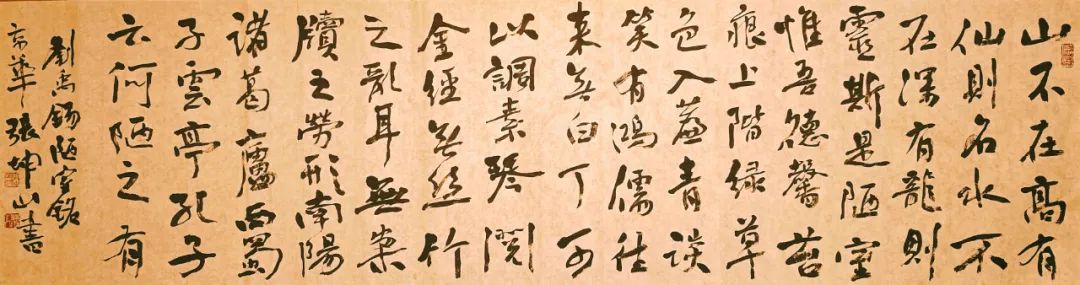 山不在高有
仙則名水不
在深有龍則
靈斯是陋室
惟吾德馨苔
痕上階緑草
色入簾青談
笑有鴻儒往
来無白丁可
以調素琴閱
金經無絲竹
之亂耳無案
牘之勞形南陽
諸葛廬西蜀
子雲亭孔子
云何陋之有
劉禹錫陋室銘
京華張坤山書